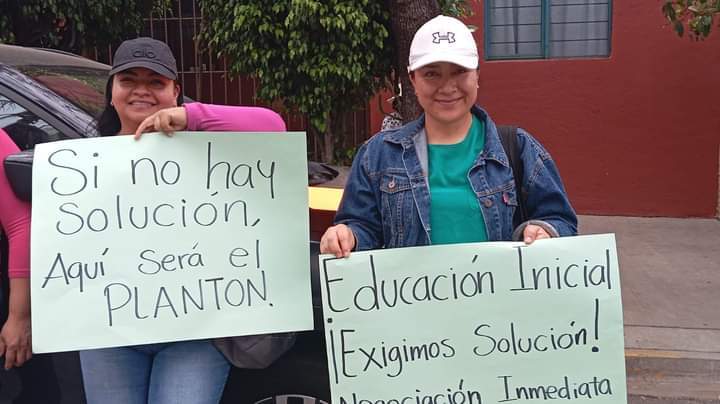 Si no hay
Solución,
Aquí será el
PLANTON.
Educación Inicial
¡Exigimos Solución!
Negociación Inmediata